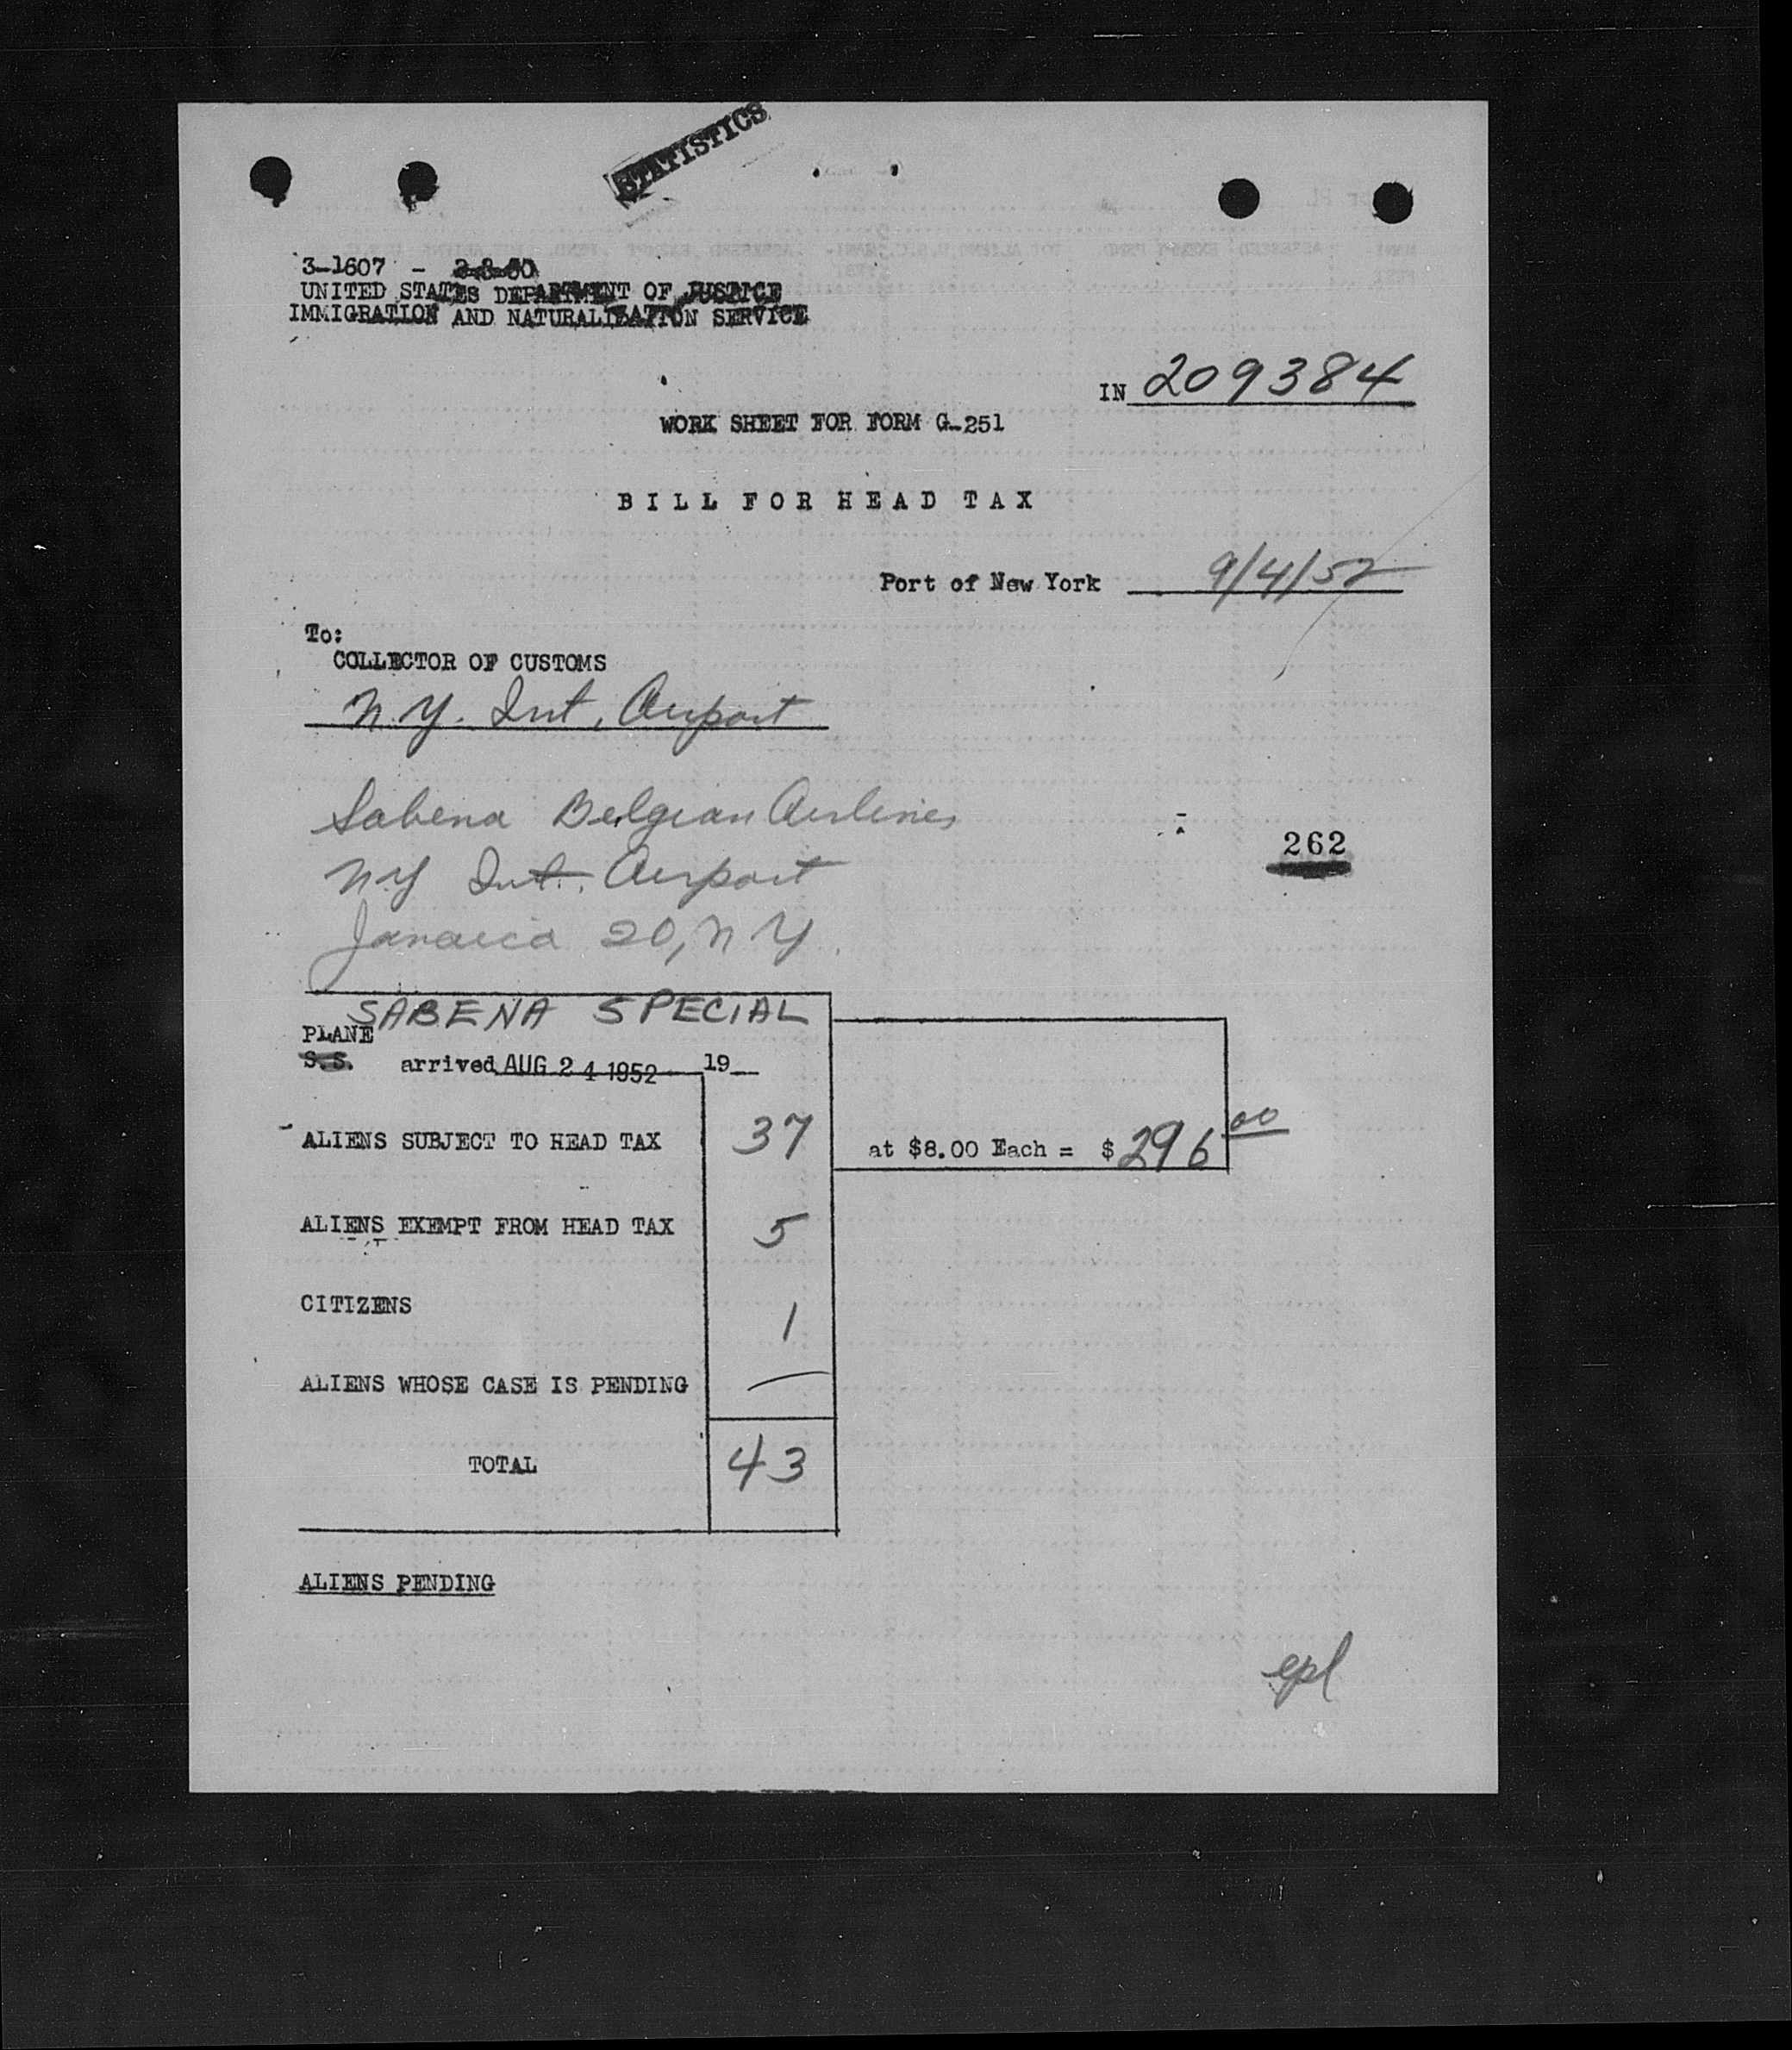 STATISTICS
3-1607 - 2-8-50
UNITED STATES DEPARTMENT OF JUSTICE
IMMIGRATION AND NATURALIZATION SERVICE
IN 209384
WORK SHEET FOR FORM G-251
BILL FOR HEAD TAX
Port of New York 9/4/52
To:
COLLECTOR OF CUSTOMS
N.Y. Int. Airport
Sabena Belgian Airlines
262
NY Int. Airport
Jamaica 20, NY.
SABENA SPECIAL
PLANE
S.S. arrived AUG 24 1952 19
ALIENS SUBJECT TO HEAD TAX 37 at $8.00 Each = $ 296 00
ALIENS EXEMPT FROM HEAD TAX 5
CITIZENS 1
ALIENS WHOSE CASE IS PENDING —
TOTAL 43
ALIENS PENDING
epl